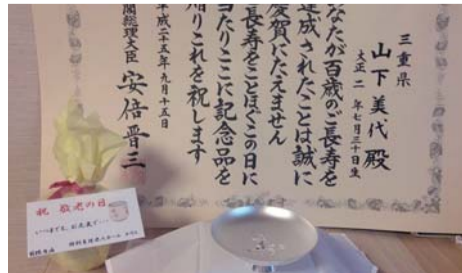 三重県
山下美代殿
大正二年七月三十日生
なたが百歳のご長寿を
達成されたことは誠に
慶賀にたえません
ご長寿をことほぐこの日に
当たりここに記念品を
贈りこれを祝します
平成二十五年九月十五日
閣総理大臣 安倍晋三
祝 敬老の日
いつまでも、お元気で…